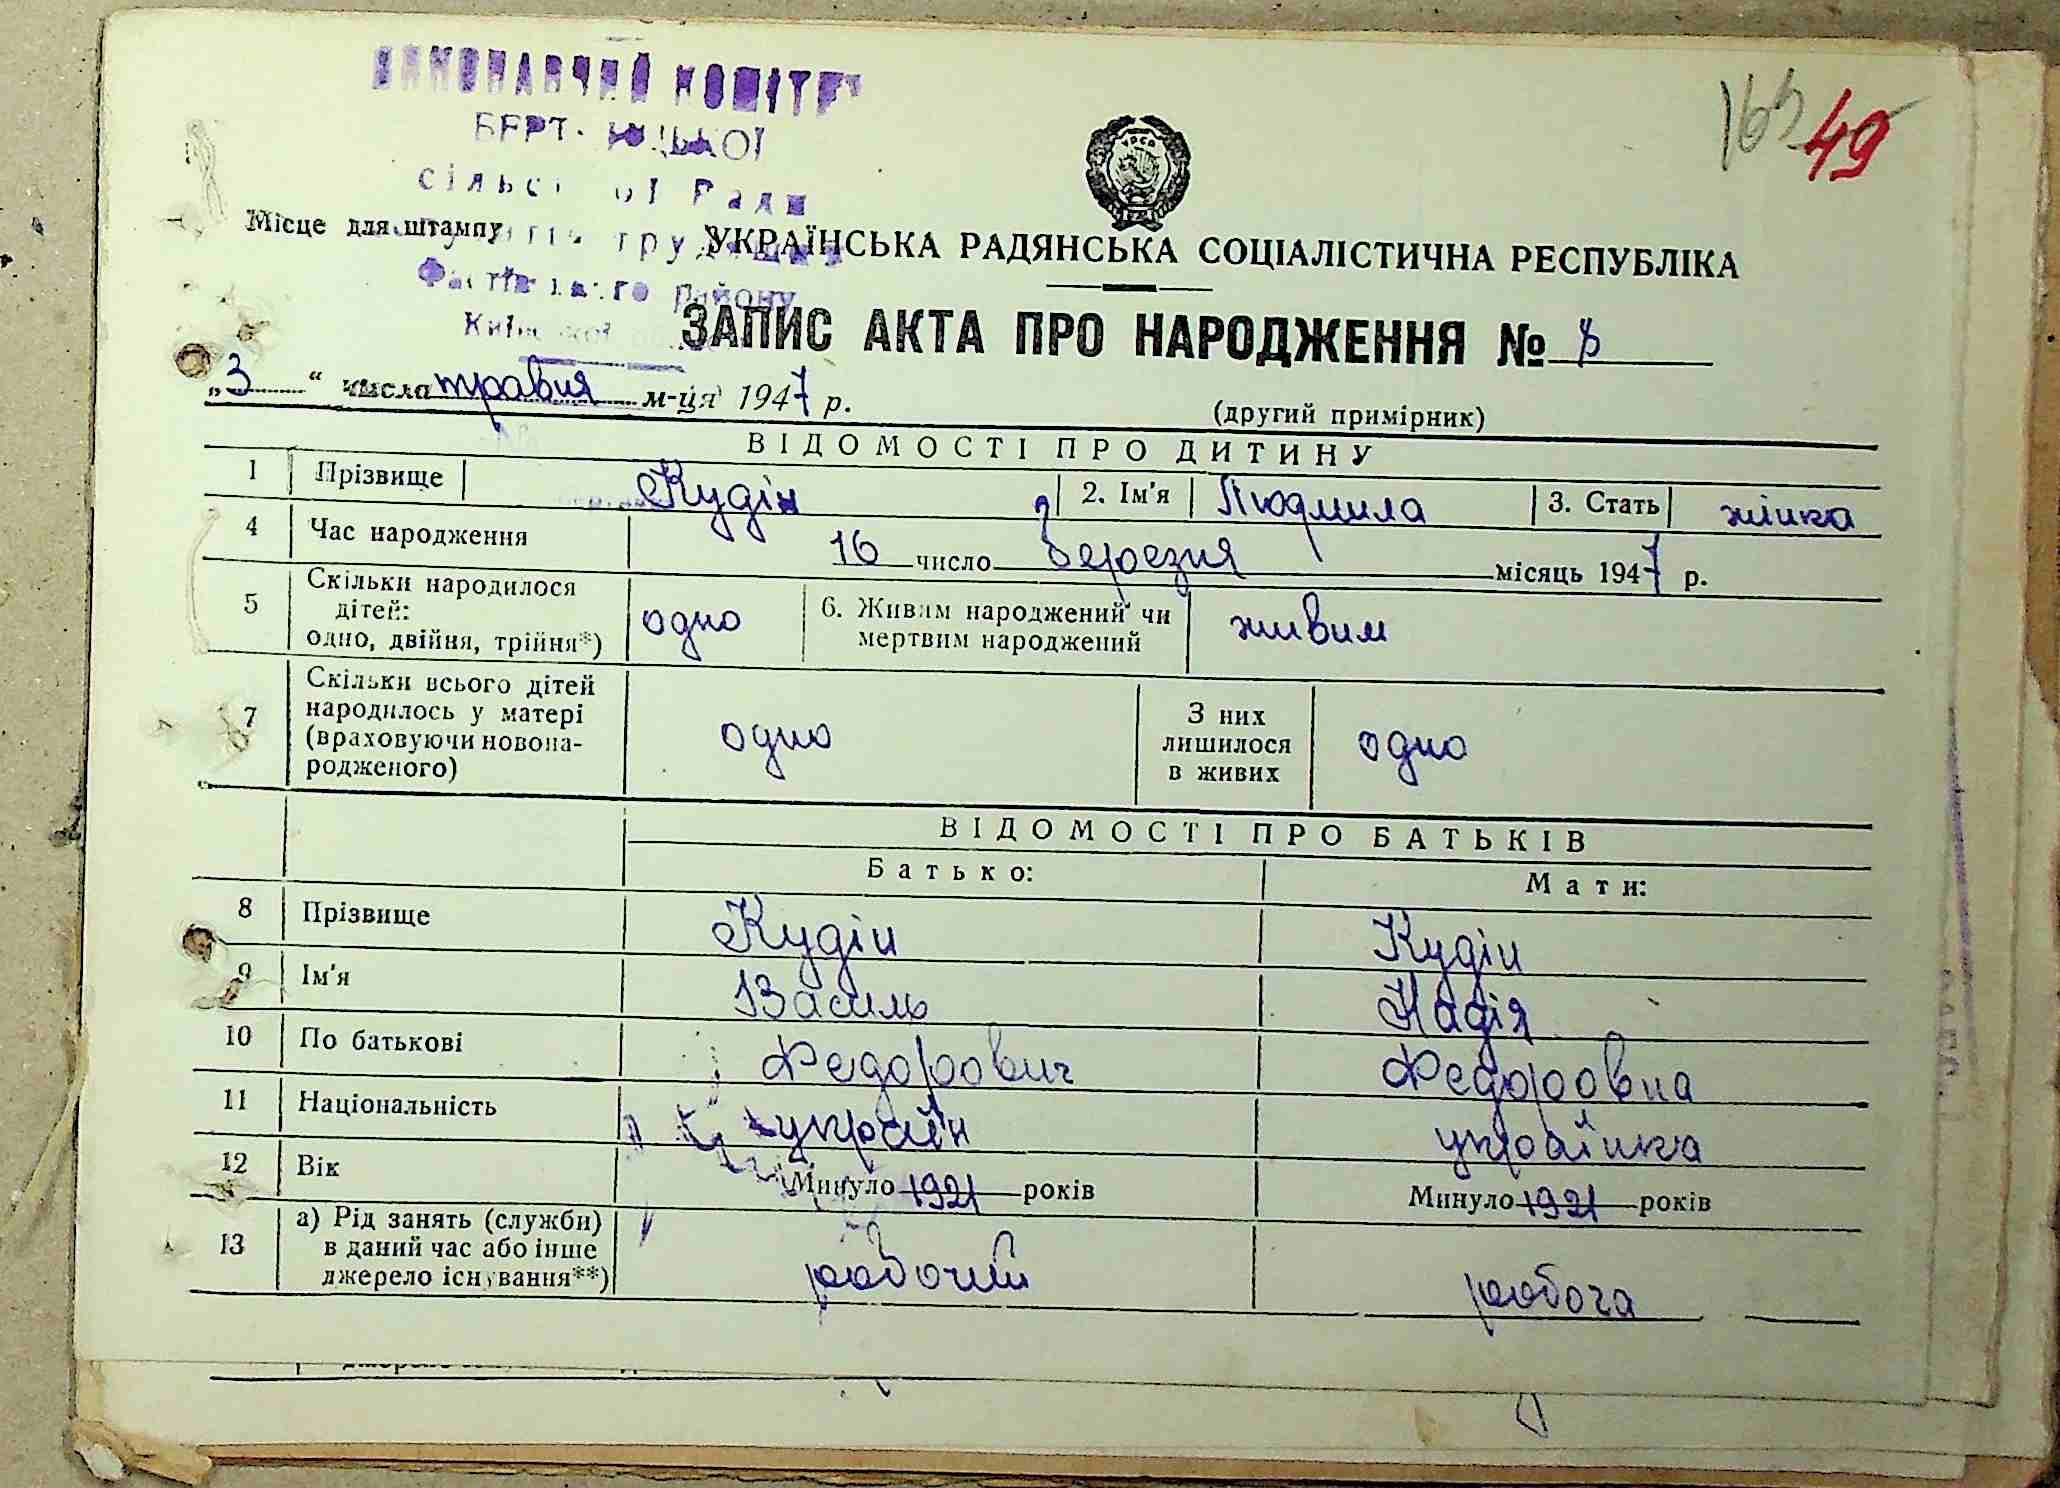 ВИКОНАВЧИЙ КОМІТЕТ
сільської Ради
163 49
УРСР
Місце для штампу
УКРАЇНСЬКА РАДЯНСЬКА СОЦІАЛІСТИЧНА РЕСПУБЛІКА
району
ЗАПИС АКТА ПРО НАРОДЖЕННЯ № 8
„3“ числа травня м-ця 1947 р.
(другий примірник)
ВІДОМОСТІ ПРО ДИТИНУ
1 Прізвище Кудін 2. Ім'я Людмила 3. Стать жінка
4 Час народження 16 число березня місяць 1947 р.
5 Скільки народилося
дітей:
одно, двійня, трійня*) одно 6. Живим народжений чи
мертвим народжений живим
7 Скільки всього дітей
народилось у матері
(враховуючи новона-
родженого) одно З них
лишилося
в живих одно
ВІДОМОСТІ ПРО БАТЬКІВ
Батько: Мати:
8 Прізвище Кудін Кудін
9 Ім'я Василь Надія
10 По батькові Федорович Федоровна
11 Національність українка
12 Вік Минуло 1921 років Минуло 1921 років
13 а) Рід занять (служби)
в даний час або інше
джерело існування**) робочий робоча